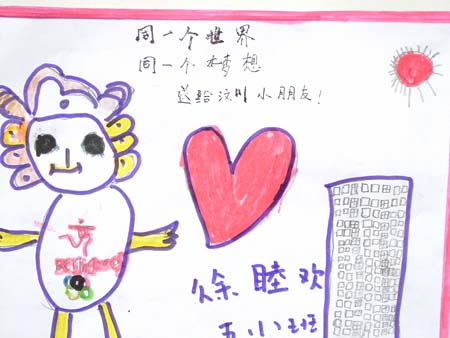 同一个世界
同一个梦想
送给汶川小朋友！
Beijing
徐睦欢
五小班